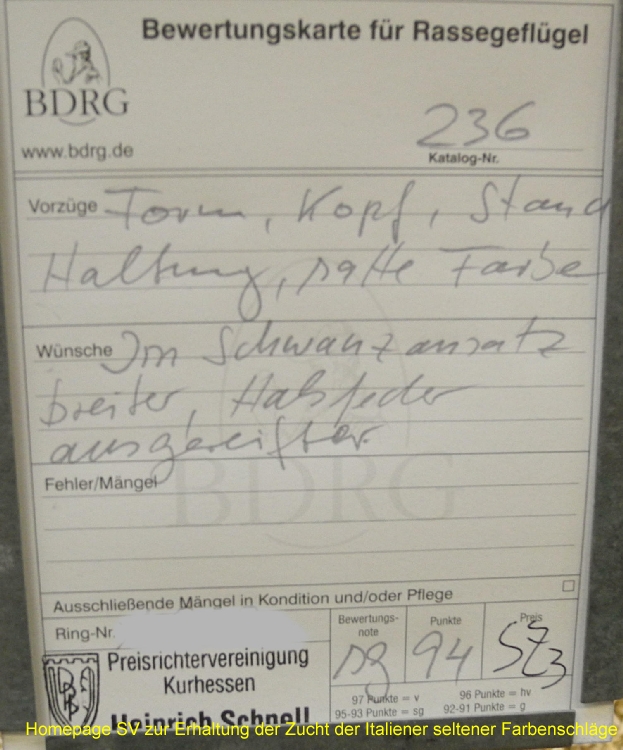 Bewertungskarte für Rassegeflügel
BDRG
www.bdrg.de
236
Katalog-Nr.
Vorzüge Form, Kopf, Stand
Haltung, satte Farbe
Wünsche Im Schwanzansatz
breiter, Halsfeder
ausgereifter.
Fehler/Mängel
BDRG
Ausschließende Mängel in Kondition und/oder Pflege
Ring-Nr.
Bewertungs-
note
sg
Punkte
94
Preis
Preisrichtervereinigung
Kurhessen
Heinrich Schnell
97 Punkte = v 96 Punkte = hv
95-93 Punkte = sg 92-91 Punkte = g
Homepage SV zur Erhaltung der Zucht der Italiener seltener Farbenschläge